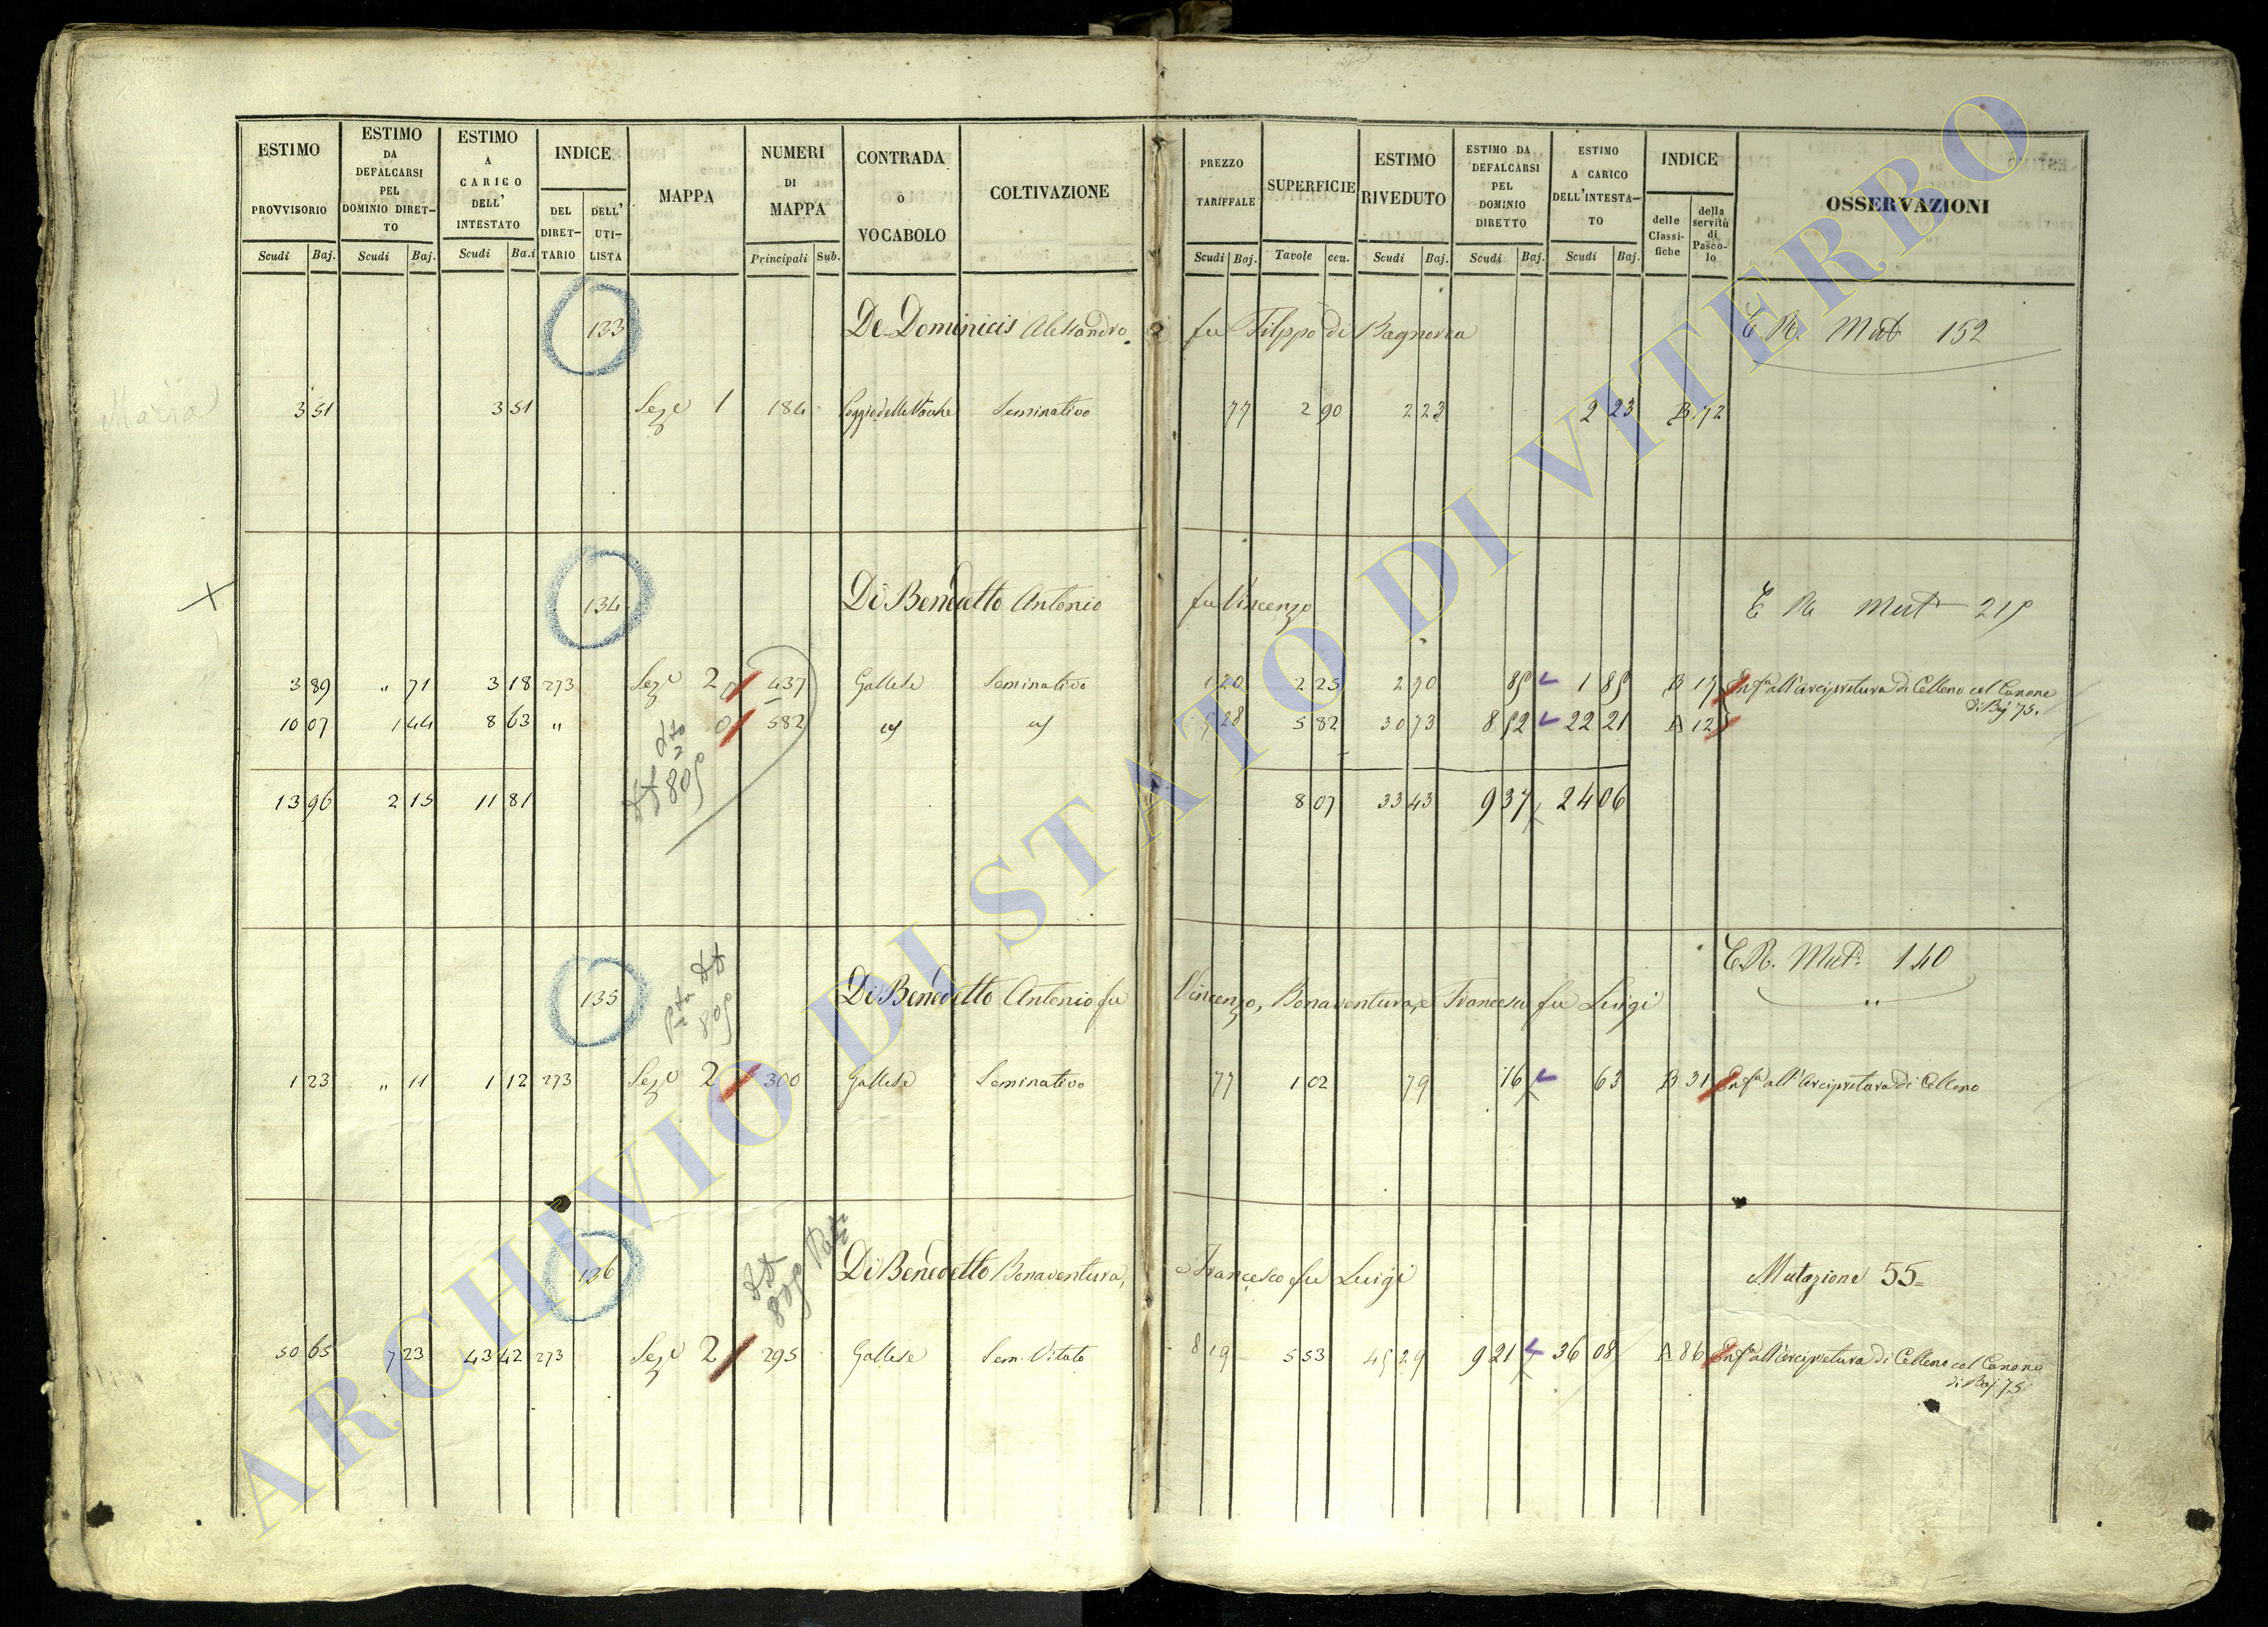 ESTIMO PROVVISORIO Scudi Baj.
ESTIMO DA DEFALCARSI PEL DOMINIO DIRET- TO Scudi Baj.
ESTIMO A CARICO DELL' INTESTATO Scudi Ba.i
INDICE DEL DIRET- TARIO DELL' UTI- LISTA
MAPPA
NUMERI DI MAPPA Principali Sub.
CONTRADA o VOCABOLO
COLTIVAZIONE
PREZZO TARIFFALE Scudi Baj.
SUPERFICIE Tavole cen.
ESTIMO RIVEDUTO Scudi Baj.
ESTIMO DA DEFALCARSI PEL DOMINIO DIRETTO Scudi Baj.
ESTIMO A CARICO DELL'INTESTA- TO Scudi Baj.
INDICE delle Classi- fiche della servitù di Pasco- lo
OSSERVAZIONI
133 De-Dominicis Alessandro fu Filippo di Bagnorea E R. Mut 152
Maria
3 51 3 51 Seze 1 184 Poggio delle Vacche Seminativo 77 2 90 2 23 2 23 B 72
134 Di Benedetto Antonio fu Vincenzo E R Mut 219
3 89 " 71 3 18 273 Seze 2 437 Gallese Seminativo 1 20 2 25 2 70 85 1 85 B 17 Enfa all'Arcipretura di Celleno col Canone
di Baj 75.
10 07 1 44 8 63 " 582 5 28 5 82 30 73 8 52 22 21 A 12
13 96 2 15 11 81 8 07 33 43 9 37 24 06
135 Di Benedetto Antonio fu Vincenzo, Bonaventura, e Francesco fu Luigi E.R. Mut. 140
1 23 " 11 1 12 273 Seze 2 300 Gallese Seminativo 77 1 02 79 16 63 B 31 Enfa all'Arcipretura di Celleno
136 Di Benedetto Bonaventura, e Francesco fu Luigi Mutazione 55
50 65 7 23 43 42 273 Seze 2 295 Gallese Sem. Vitato 8 19 5 53 45 29 9 21 36 08 A 86 Enfa all'Arcipretura di Celleno col Canone
di Baj 75
ARCHIVIO DI STATO DI VITERBO